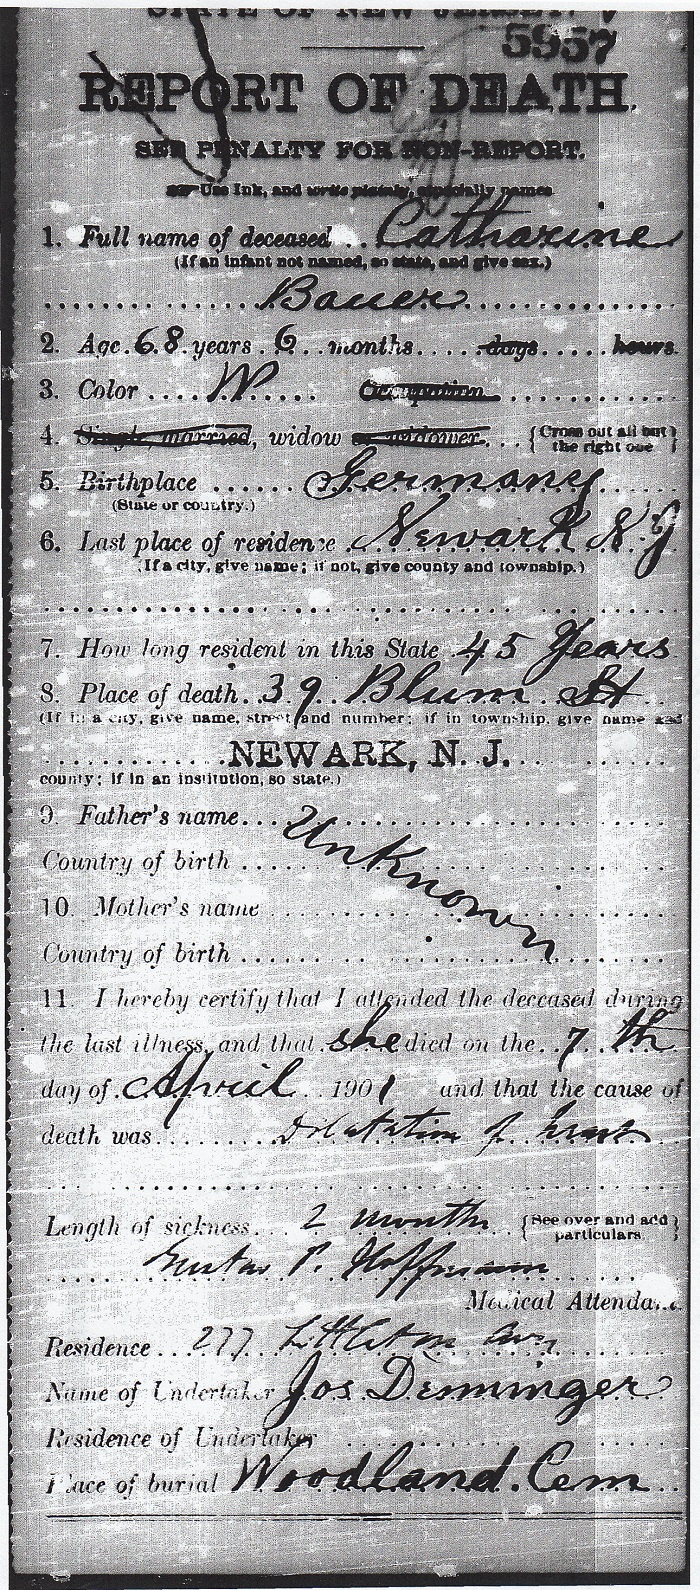 STATE OF NEW JERSEY.
5957
REPORT OF DEATH.
SEE PENALTY FOR NON-REPORT.
Use Ink, and write plainly, especially names
1. Full name of deceased .. Catharine
(If an infant not named, so state, and give sex.)
Bauer
2. Age. 68 years. 6 months..... days.... hours.
3. Color .... W .... Occupation
4. Single, married, widow or widower... {Cross out all but the right one}
5. Birthplace ...... Germany
(State or country.)
6. Last place of residence. Newark N.J
(If a city, give name; if not, give county and township.)
7. How long resident in this State 45 Years
8. Place of death.. 39 Blum St
(If in a city, give name, street and number; if in township, give name and
NEWARK, N. J.
county; if in an institution, so state.)
9. Father's name.... Unknown
Country of birth
10. Mother's name
Country of birth
11. I hereby certify that I attended the deceased during
the last illness, and that she died on the 7 th
day of April 1901 and that the cause of
death was Dilatation of heart
Length of sickness... 2 months {See over and add particulars}
Gustav P. Hoffmann
Medical Attendant.
Residence... 277 Littleton Ave
Name of Undertaker Jos Denninger
Residence of Undertaker
Place of burial Woodland Cem